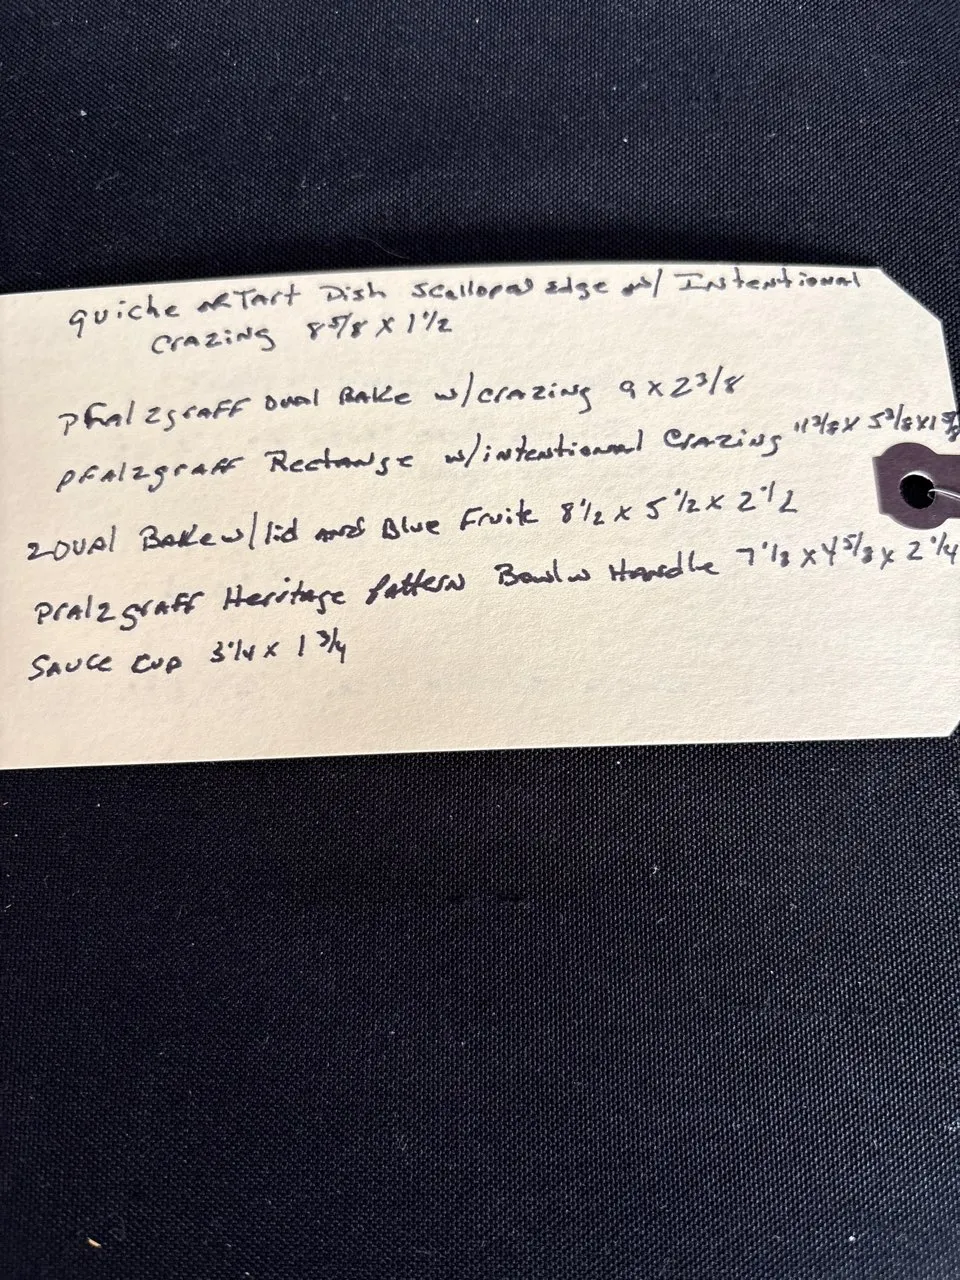 quiche or Tart Dish scalloped edge w/ Intentional
crazing 8 5/8 x 1 1/2
Pfalzgraff Oval Bake w/crazing 9 x 2 3/8
Pfalzgraff Rectange w/intentional Crazing 11 3/8 x 5 3/8 x 1
2 Oval Bake w/lid and Blue Fruit 8 1/2 x 5 1/2 x 2 1/2
Pfalzgraff Heritage Pattern Bowl w Handle 7 1/8 x 4 5/8 x 2 1/4
Sauce Cup 3 1/4 x 1 3/4